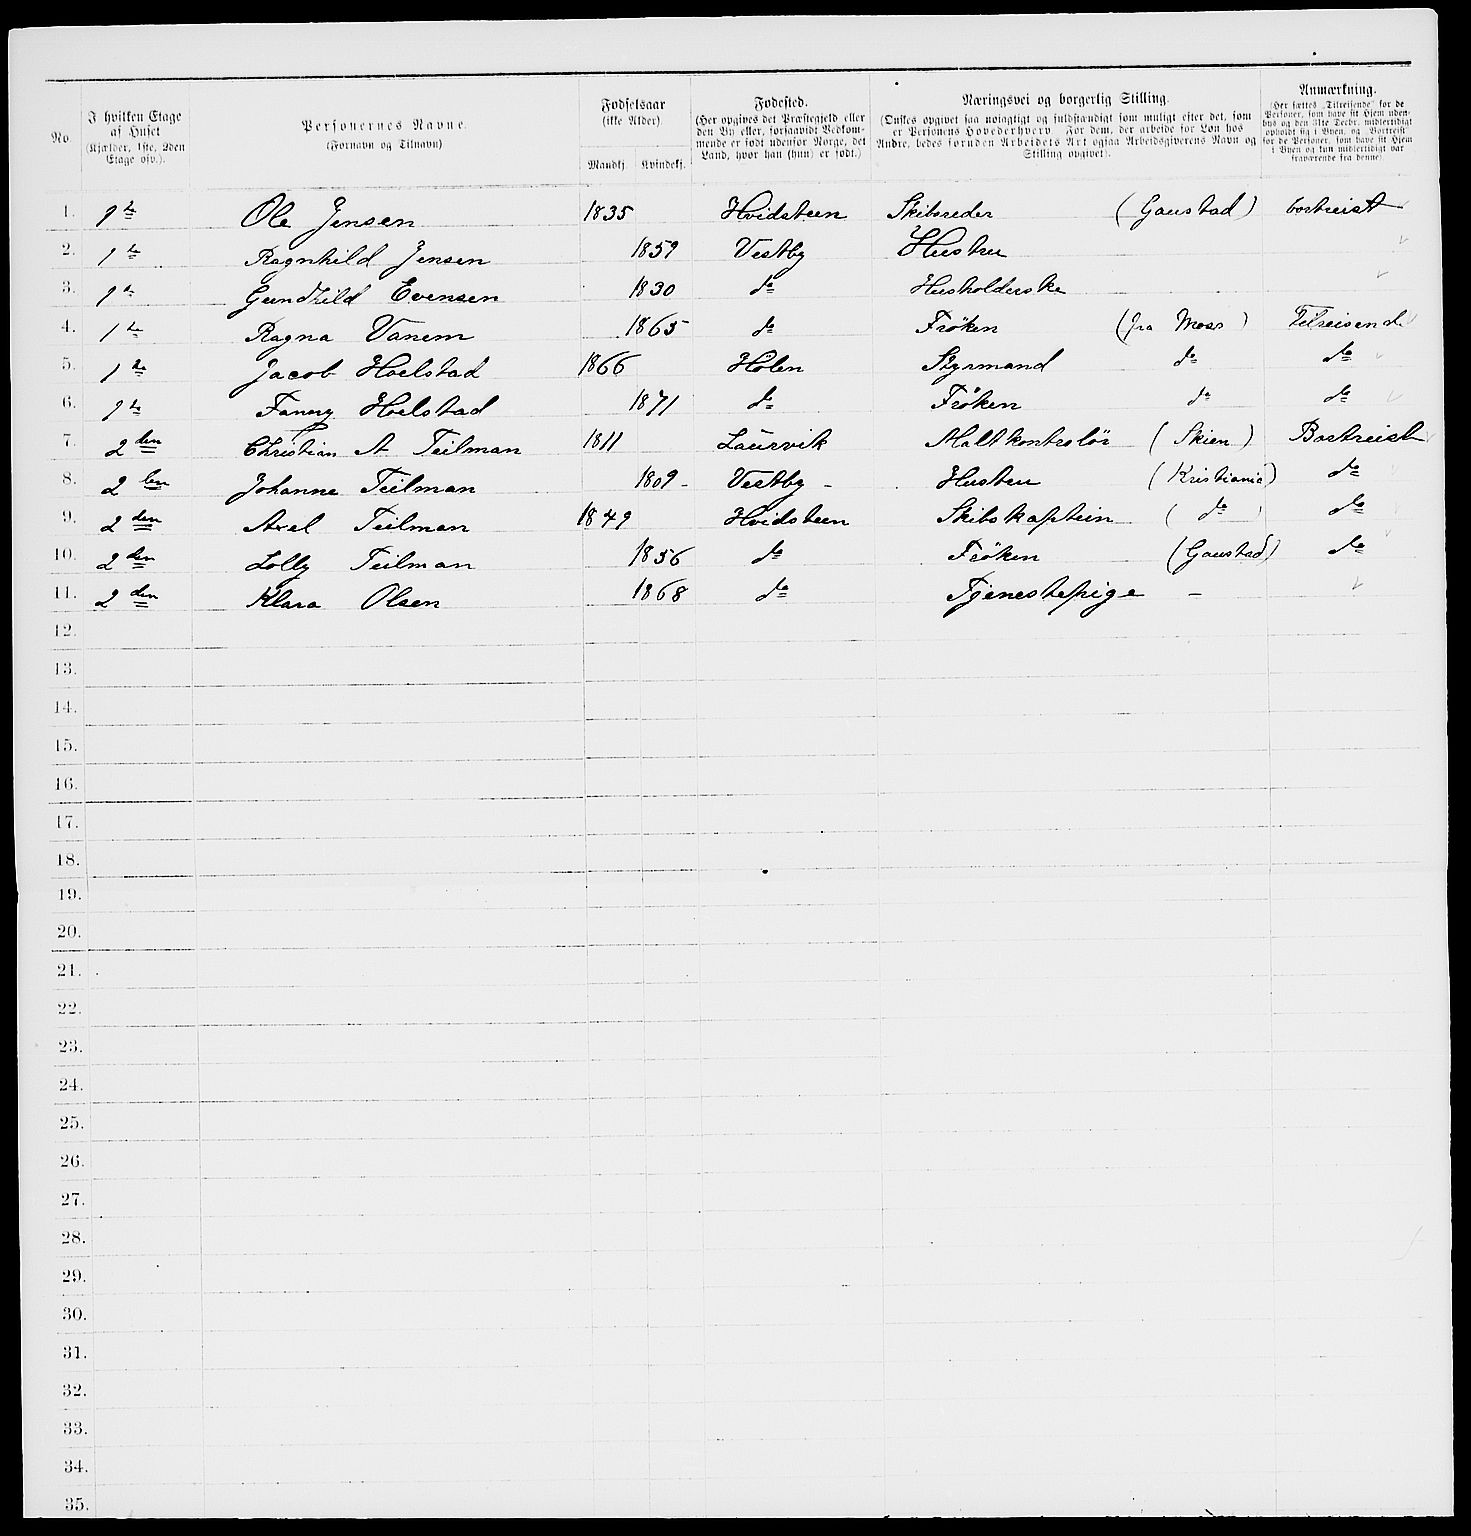 No.
I hvilken Etage af Huset (Kjælder, 1ste, 2den Etage osv.).
Personernes Navne. (Fornavn og Tilnavn)
Fødselsaar (ikke Alder). Mandkj. Kvindekj.
Fødested. (Her opgives det Præstegjeld eller den By eller, forsaavidt Vedkommende er født udenfor Norge, det Land, hvor han (hun) er født.)
Næringsvei og borgerlig Stilling. (Ønskes opgivet saa nøiagtigt og fuldstændigt som muligt efter det, som er Personens Hovederhverv. For dem, der arbeide for Løn hos Andre, bedes foruden Arbeidets Art ogsaa Arbeidsgiverens Navn og Stilling opgivet).
Anmærkning. (Her sættes „Tilreisende“ for de Personer, som have sit Hjem udenbys og den 31te Decbr. midlertidigt opholdt sig i Byen, og „Bortreist“ for de Personer, som have sit Hjem i Byen og kun midlertidigt var fraværende fra denne)
1. 1te Ole Jensen 1835 Hvidsteen Skibsreder (Gaustad) bortreist
2. 1te Ragnhild Jensen 1859 Vestby Hustru
3. 1te Gundhild Evensen 1830 do Husholderske
4. 1te Ragna Vanem 1865 do Fröken (fra Moss) Tilreisende
5. 1te Jacob Hoelstad 1866 Holen Styrmand do do
6. 1te Fanny Hoelstad 1871 do Fröken do do
7. 2den Christian A Teilman 1811 Laurvik Maltkontrolör (Skien) Bortreist
8. 2den Johanne Teilman 1809 - Vestby - Hustru (Kristiania) do
9. 2den Axel Teilman 1849 Hvidsteen Skibskaptein (do) do
10. 2den Lolly Teilman 1856 do Fröken (Gaustad) do
11. 2den Klara Olsen 1868 do Tjenestepige -
12.
13.
14.
15.
16.
17.
18.
19.
20.
21.
22.
23.
24.
25.
26.
27.
28.
29.
30.
31.
32.
33.
34.
35.